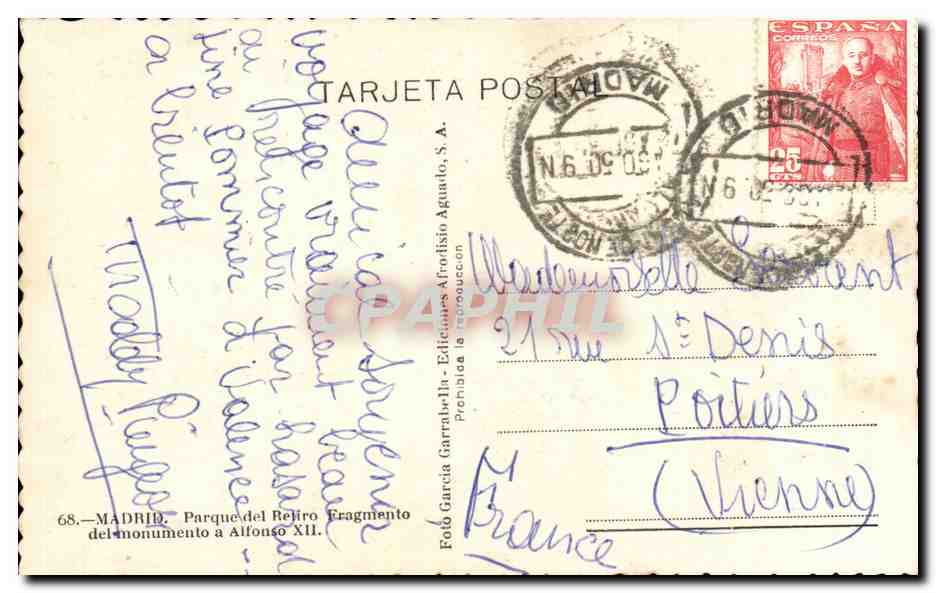 TARJETA POSTAL
ESPAÑA
CORREOS
25
CTS
MADRID
50 9 N
MADRID
9 N
Amical souvenir
voyage vraiment beau
ai rencontré par hasard
Pommier d'Valence
Maddy
Foto Garcia Garrabella - Ediciones Afrodisio Aguado, S. A.
Prohibida la reproduccion
Mademoiselle
21 rue St Denis
Poitiers
(Vienne)
France
68.—MADRID. Parque del Retiro Fragmento
del monumento a Alfonso XII.
CPAPHIL